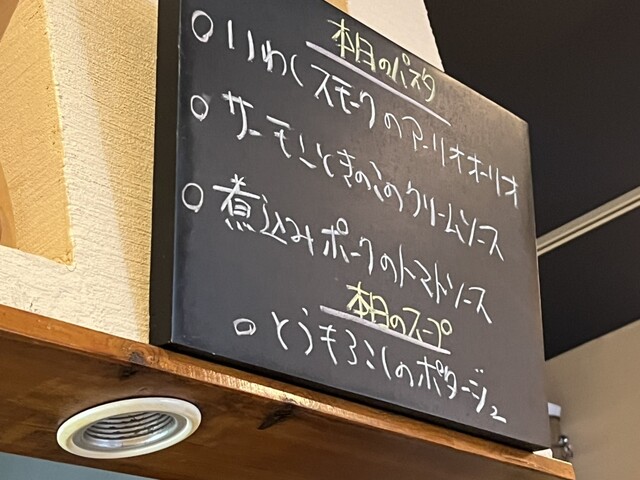 本日のパスタ
○いわしスモークのアーリオオーリオ
○サーモンときのこのクリームソース
○煮込みポークのトマトソース
本日のスープ
○とうもろこしのポタージュ